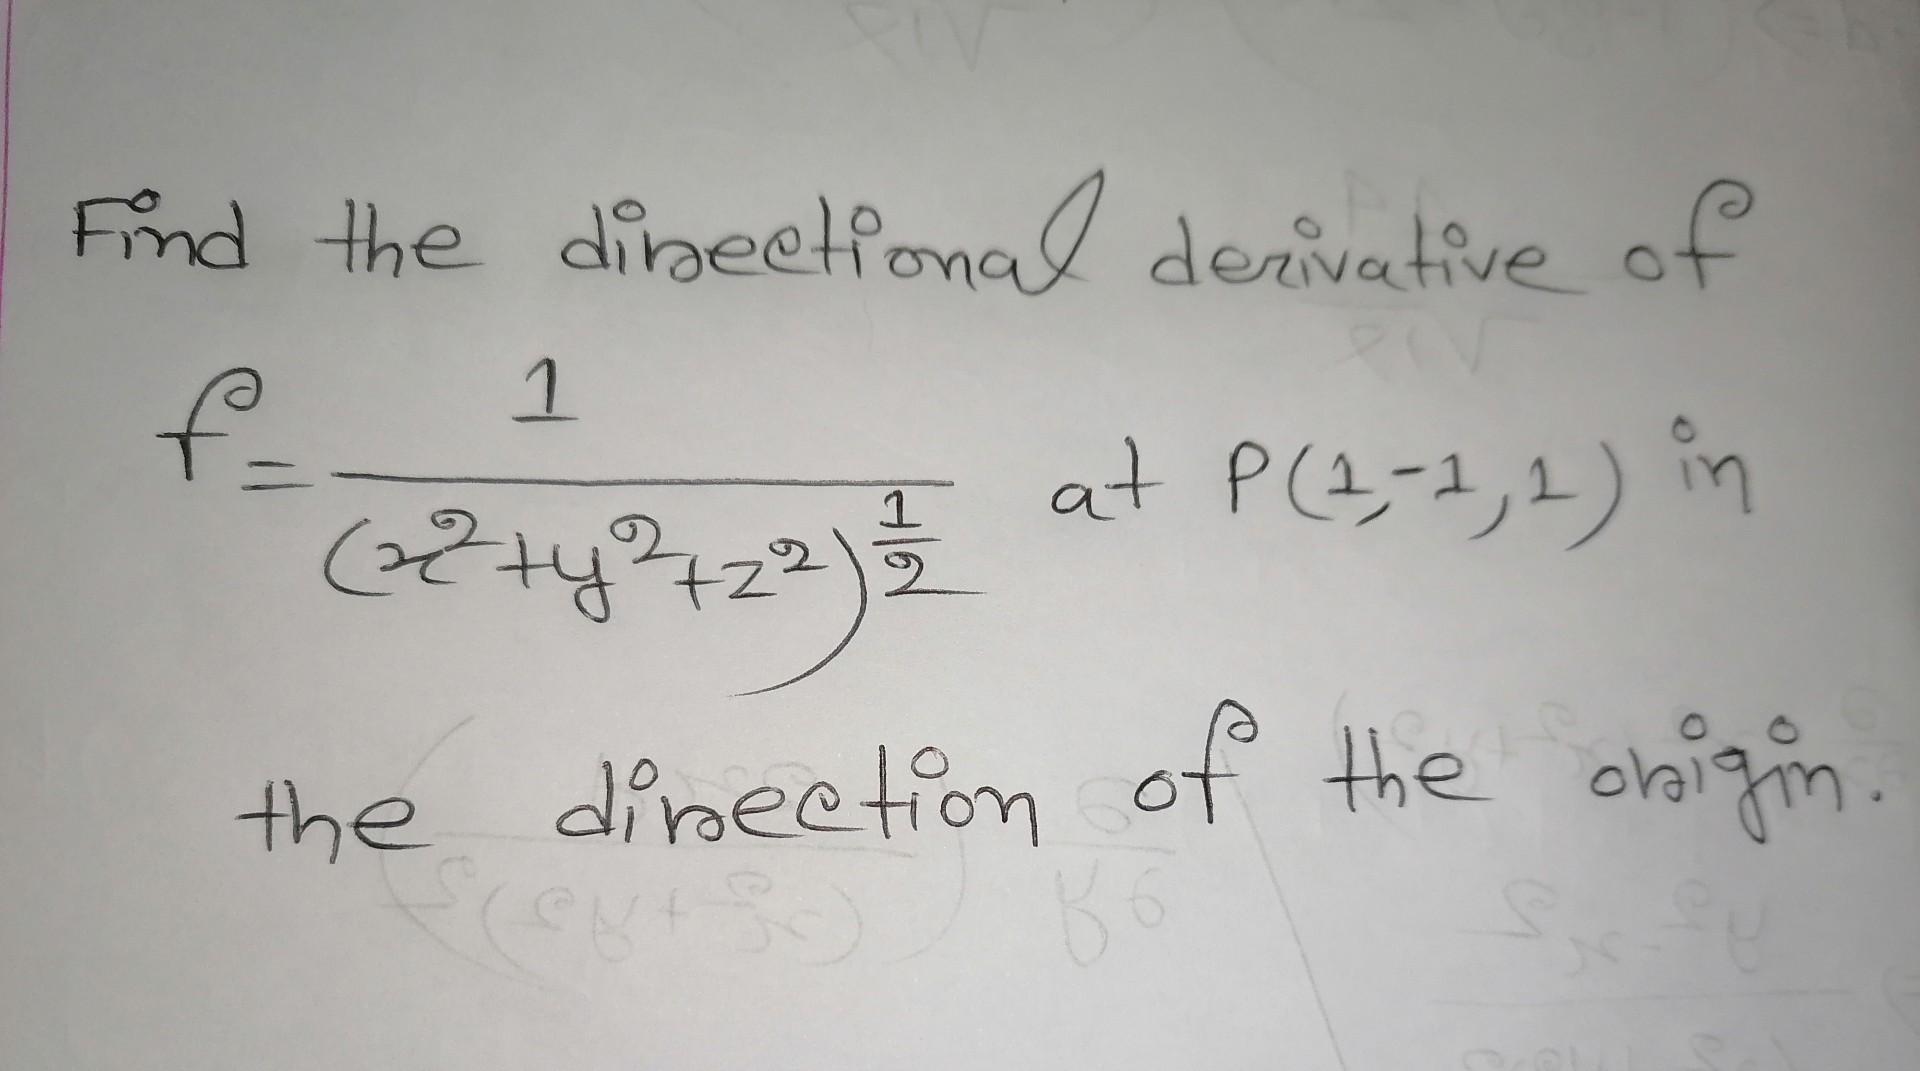 Find the directional derivative of
f = 1/(x²+y²+z²)^(1/2) at P(1,-1,1) in
the direction of the origin.